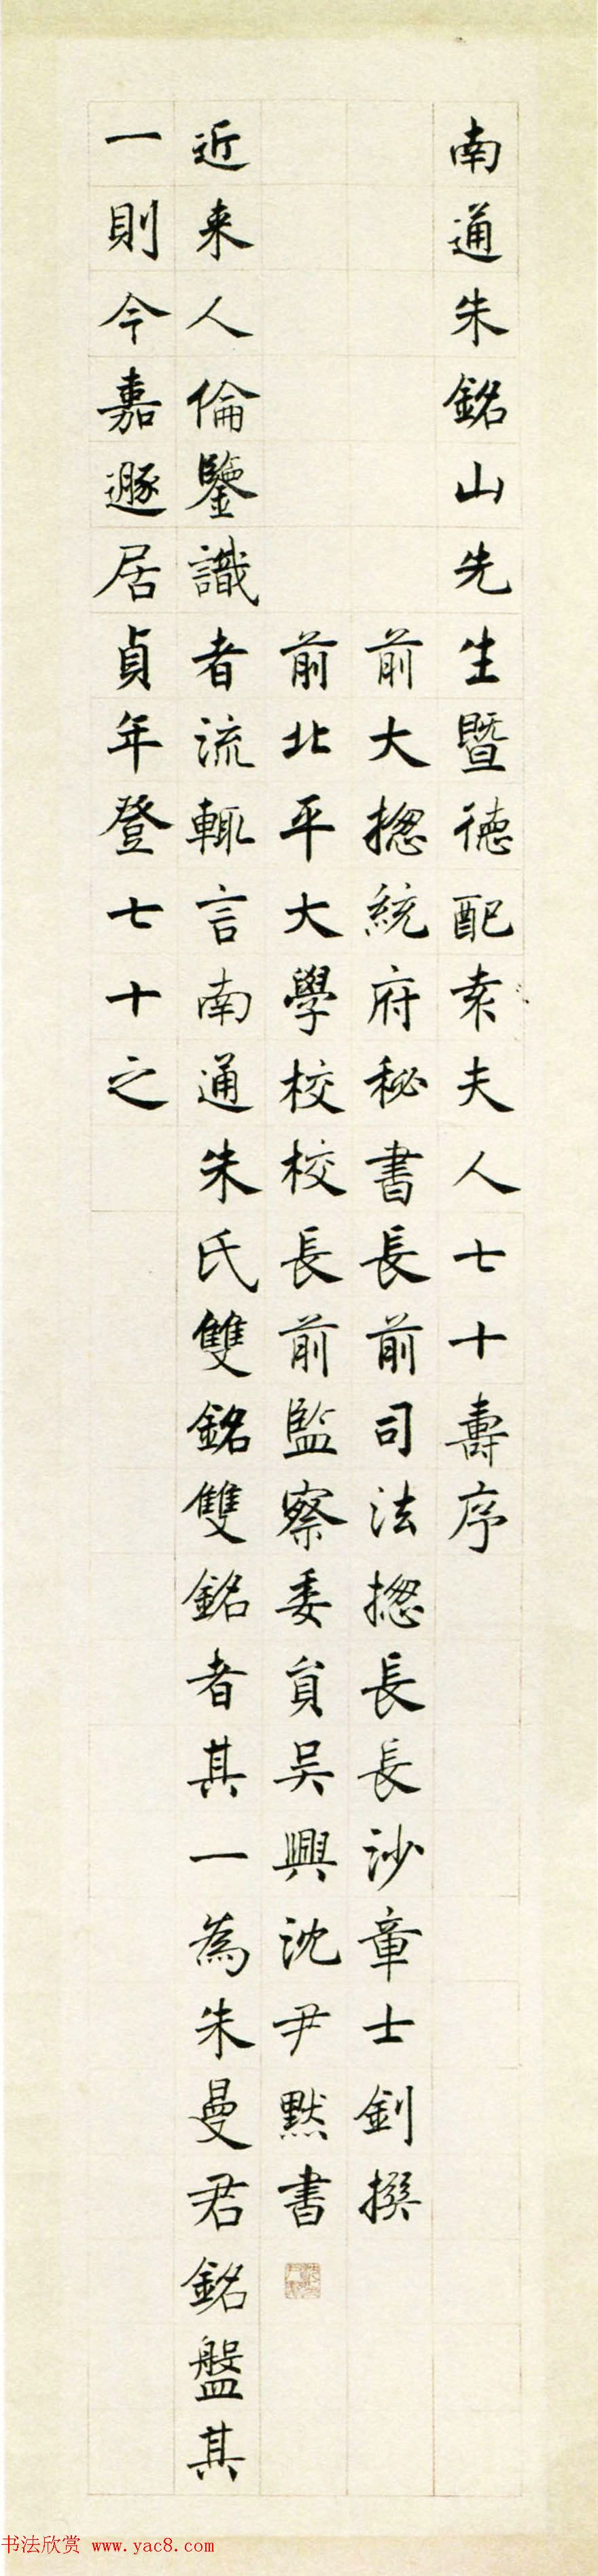 南通朱銘山先生暨德配袁夫人七十壽序
前大揔統府秘書長前司法揔長長沙章士釗撰
前北平大學校校長前監察委員吳興沈尹默書
近来人倫鑒識者流輒言南通朱氏雙銘雙銘者其一為朱曼君銘盤其
一則今嘉遯居貞年登七十之
书法欣赏 www.yac8.com